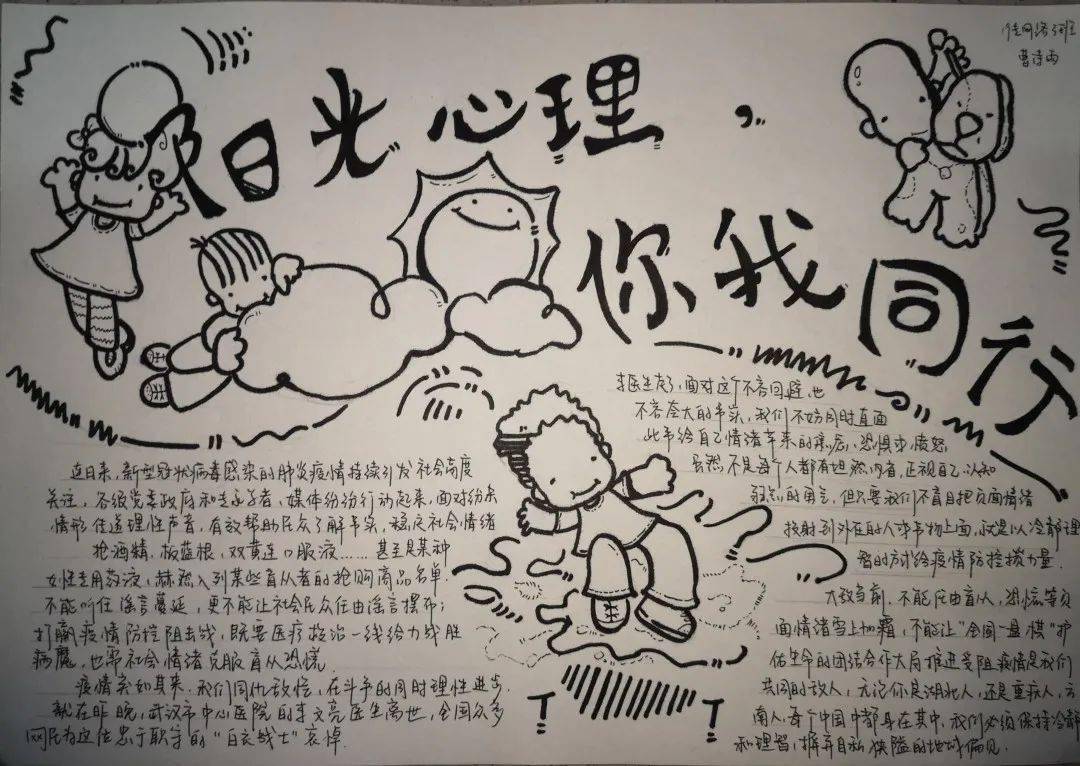 阳光心理，
你我同行
网络3班
曹诗雨
近日来，新型冠状病毒感染的肺炎疫情持续引发社会高度
关注，各级党委政府和专家学者、媒体纷纷行动起来，面对纷杂
情形传送理性声音，有效帮助民众了解事实，稳定社会情绪
抢酒精，板蓝根，双黄连口服液……甚至是某种
女性专用药液，赫然入列某些盲从者的抢购商品名单.
不能听任谣言蔓延，更不能让社会民众任由谣言摆布；
打赢疫情防控阻击战，既要医疗救治一线给力战胜
病魔，也需社会情绪克服盲从恐慌.
疫情突如其来.我们同仇敌忾，在斗争的同时理性进步.
就在昨晚，武汉市中心医院的李文亮医生离世，全国众多
网民为这位忠于职守的“白衣战士”哀悼.
李医生走了，面对这个不容回避也
不容夸大的事实，我们不妨同时直面
此事给自己情绪带来的哀,恐惧或愤怒
虽然不是每个人都有坦然内省，正视自己认知
弱点的勇气，但只要我们不盲目把负面情绪
投射到外在的人或事物上面，就是以冷静理
智的方式给疫情防控拨力量.
大敌当前，不能任由盲从，恐慌等负
面情绪雪上加霜，不能让“全国一盘棋”护
佑生命的团结合作大局推进受阻疫情是我们
共同的敌人，无论你是湖北人，还是重庆人，云
南人，每个中国中都身在其中，我们必须保持冷静
和理智，摒弃自私狭隘的地域偏见.